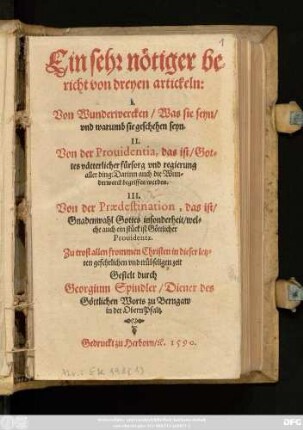 1
Ein sehr nötiger be
richt von dreyen artickeln:
I.
Von Wunderwercken / Was sie seyn /
vnd warumb sie geschehen seyn.
II.
Von der Prouidentia, das ist / Got-
tes väterlicher fürsorg vnd regierung
aller ding: Darinn auch die Wun-
derwerck begriffen werden.
III.
Von der Prædestination, das ist /
Gnadenwahl Gottes insonderheit / wel-
che auch ein stück ist Göttlicher
Prouidentz.
Zu trost allen frommen Christen in dieser letz-
ten gefehrlichen vnd
zeit
Gestelt durch
Georgium Spindler / Diener des
Göttlichen Worts zu
in der Obern Pfaltz.
Gedruckt zu Herborn / &c. 1590.